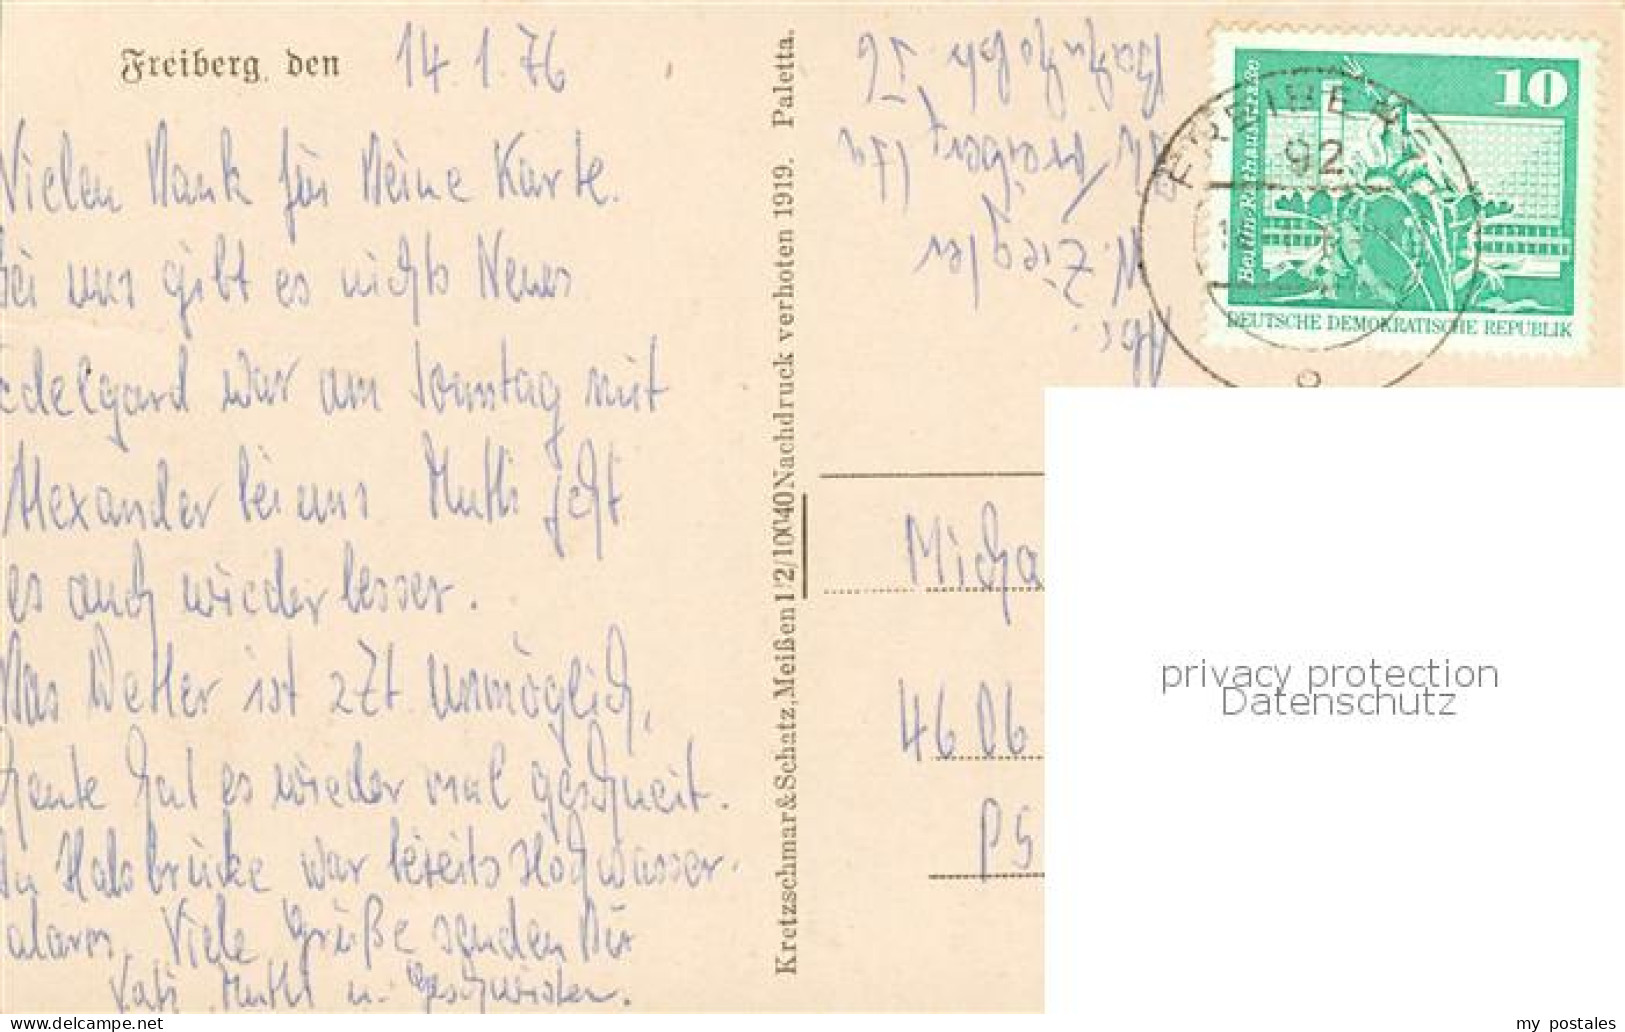 Freiberg, den 14.1.76
Vielen Dank für Deine Karte.
Bei uns gibt es nichts Neues
Edelgard war am Sonntag mit
Alexander bei uns. Mutti geht
es auch wieder besser.
Das Wetter ist zZt. unmöglich,
heute hat es wieder mal geschneit.
In Halsbrücke war bereits Hochwasser-
alarm. Viele Grüße senden Dir
Vati, Mutti u. Geschwister.
Kretzschmar & Schatz, Meißen 1 2/10040 Nachdruck verboten 1919. Paletta.
Abs.
W. Ziegler
92 Freiberg
10
Berlin-Rathausstraße
DEUTSCHE DEMOKRATISCHE REPUBLIK
FREIBERG
92
Micha
4606
PS
privacy protection
Datenschutz
www.delcampe.net
my_postales